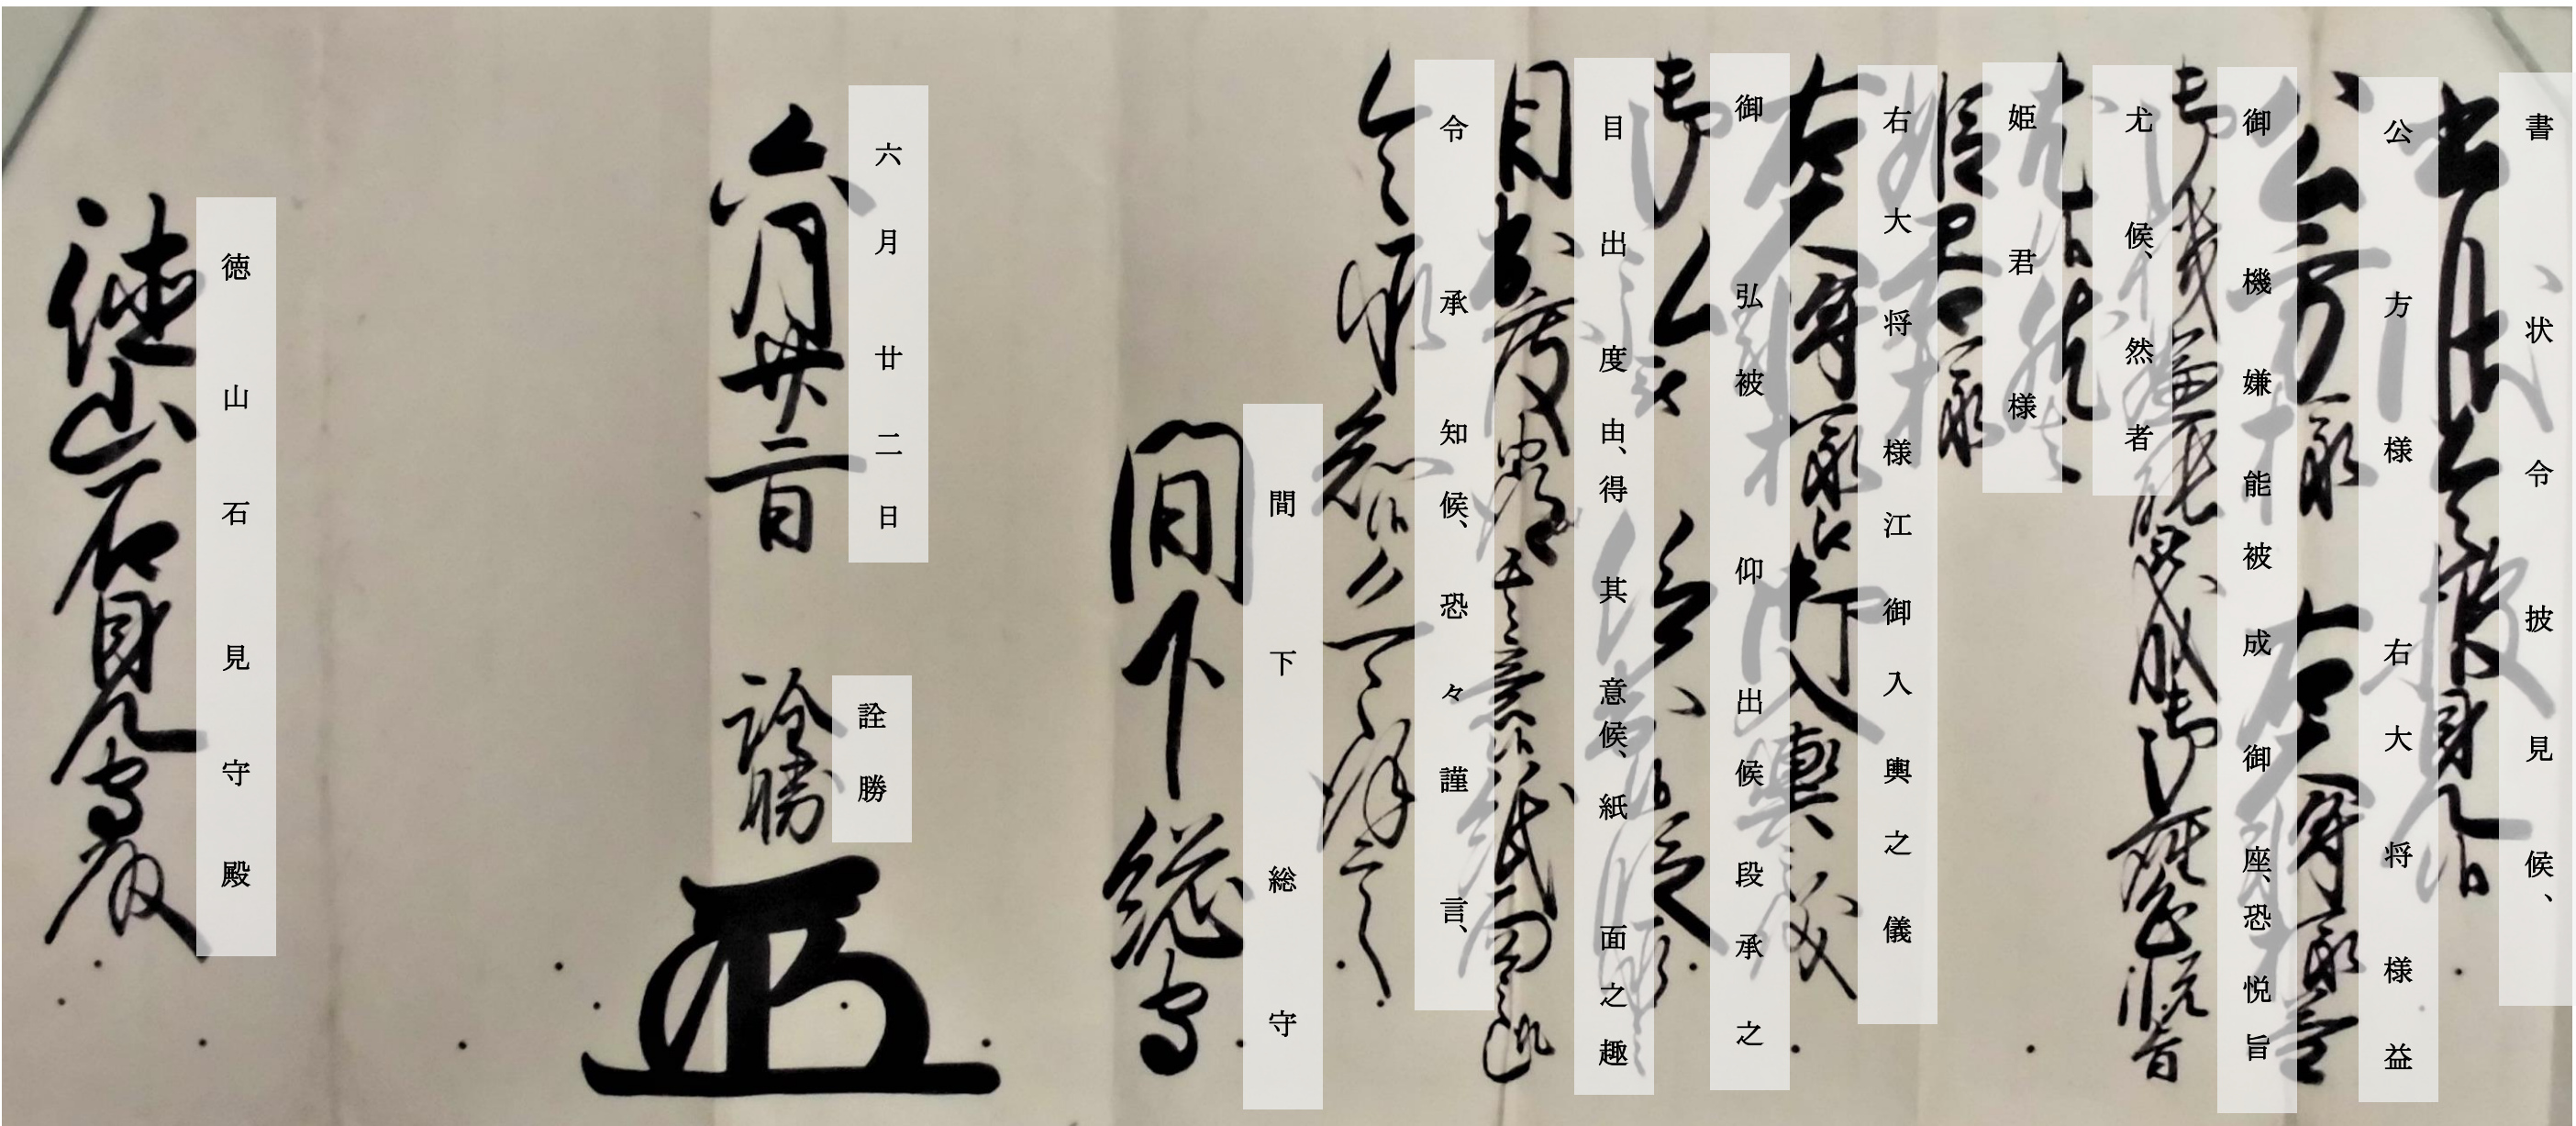 書状令披見候、
公方様 右大将様益
御機嫌能被成御座、恐悦旨
尤候、然者
姫君様
右大将様江御入輿之儀
御弘被 仰出候段承之
目出度由、得其意候、紙面之趣
令承知候、恐々謹言、
間下総守
六月廿二日
詮勝
徳山石見守殿